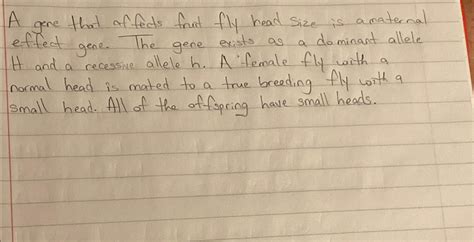 A gene that affects fruit fly head size is a maternal
effect gene. The gene exists as a dominant allele
H and a recessive allele h. A female fly with a
normal head is mated to a true breeding fly with a
small head. All of the offspring have small heads.